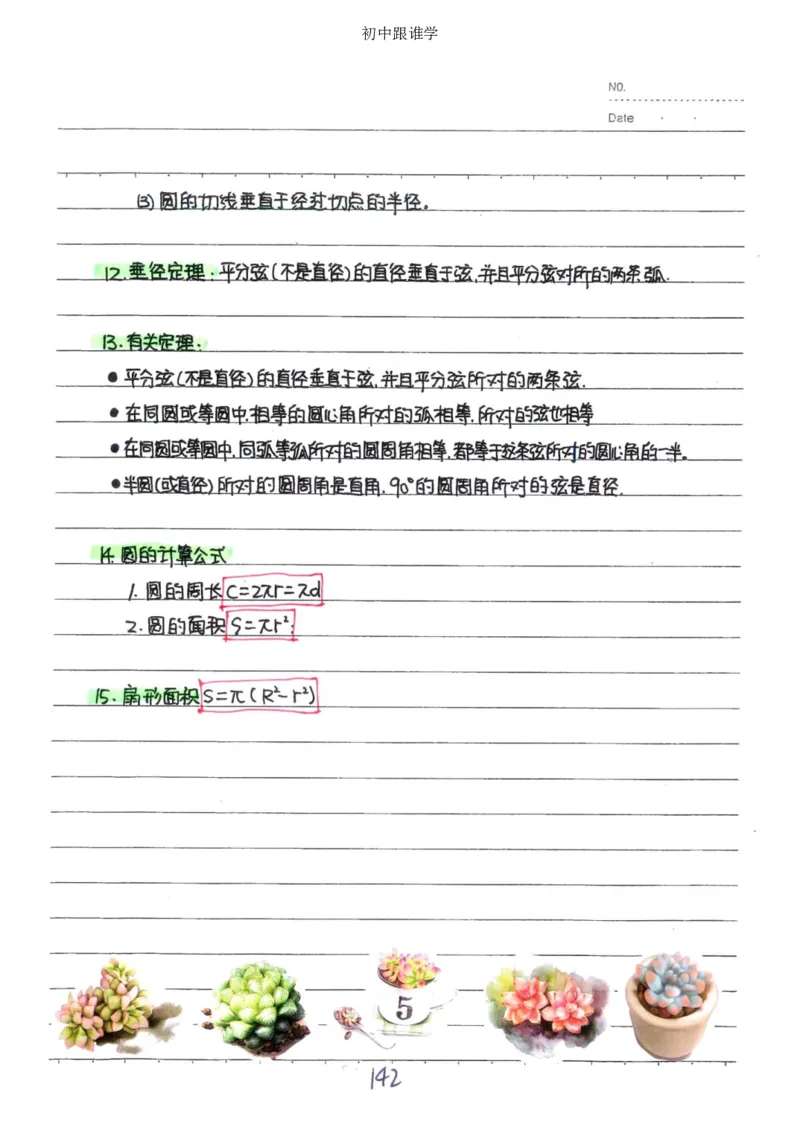 初中跟谁学
NO.
Date
(3) 圆的切线垂直于经过切点的半径。
12.垂径定理:平分弦(不是直径)的直径垂直于弦,并且平分弦对所的两条弧.
13.有关定理:
●平分弦(不是直径)的直径垂直于弦,并且平分弦所对的两条弦.
●在同圆或等圆中,相等的圆心角所对的弧相等,所对的弦也相等
●在同圆或等圆中,同弧等弧所对的圆周角相等,都等于这条弦所对的圆心角的一半。
●半圆(或直径)所对的圆周角是直角,90°的圆周角所对的弦是直径.
14.圆的计算公式
1.圆的周长C=2πr=πd
2.圆的面积S=πr²;
15.扇形面积S=π(R²-r²)
5
142